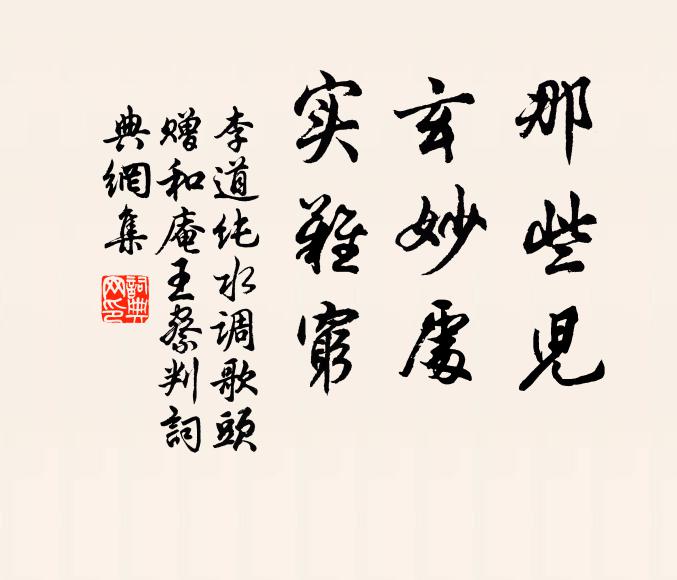 那些兒
玄妙處
实難窮
李道纯水调歌頭
赠和庵王察判詞
典網集
詞典网印